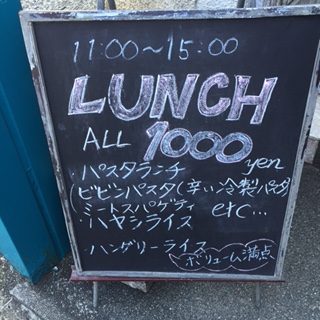 11:00～15:00
LUNCH
ALL 1000 yen
・パスタランチ
(ビビンパスタ(辛い冷製パスタ)
・ミートスパゲティ etc...
・ハヤシライス
・ハングリーライス
ボリューム満点